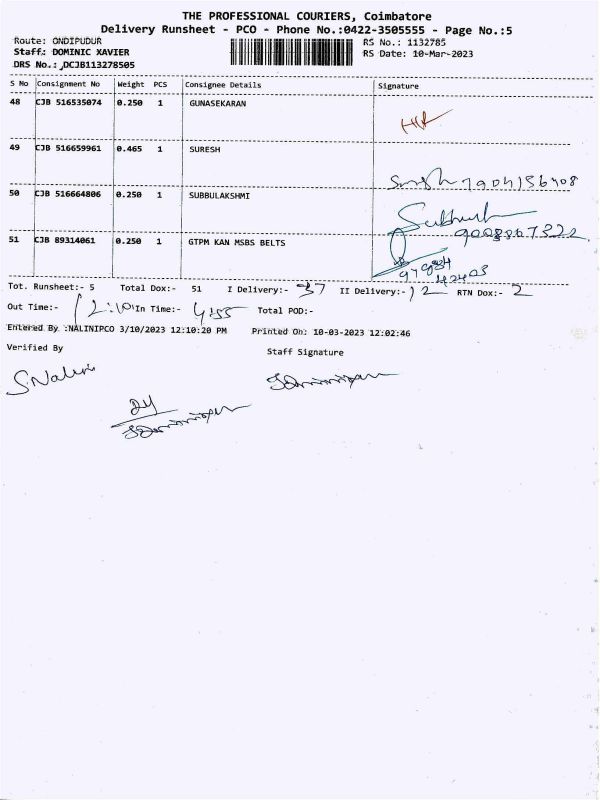 THE PROFESSIONAL COURIERS, Coimbatore
Delivery Runsheet - PCO - Phone No.:0422-3505555 - Page No.:5
Route: ONDIPUDUR RS No.: 1132785
Staff: DOMINIC XAVIER RS Date: 10-Mar-2023
DRS No.: DCJB113278505
S No Consignment No Weight PCS Consignee Details Signature
48 CJB 516535074 0.250 1 GUNASEKARAN
49 CJB 516659961 0.465 1 SURESH
Suresh 7904156408
50 CJB 516664806 0.250 1 SUBBULAKSHMI
51 CJB 89314061 0.250 1 GTPM KAN MSBS BELTS
Tot. Runsheet:- 5 Total Dox:- 51 I Delivery:- 37 II Delivery:- 12 RTN Dox:- 2
Out Time:- 12:10 In Time:- 4:55 Total POD:-
Entered By :NALINIPCO 3/10/2023 12:10:20 PM Printed On: 10-03-2023 12:02:46
Verified By Staff Signature
S.Nalini